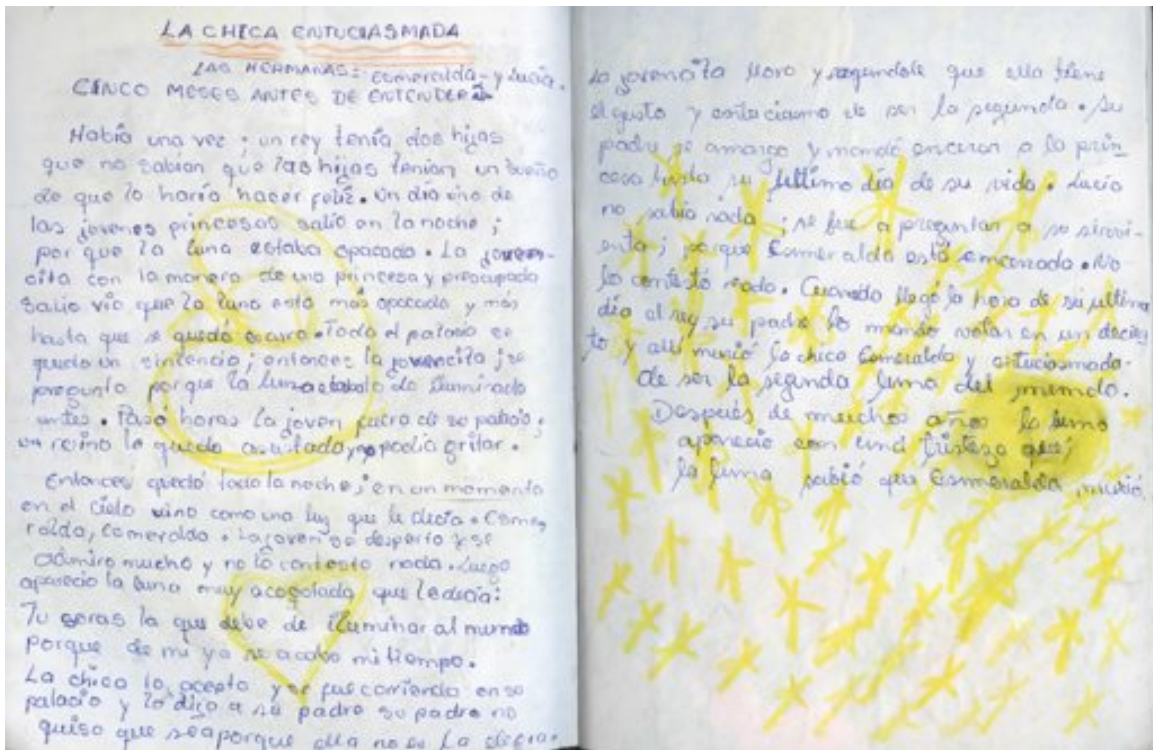 LA CHICA ENTUCIASMADA
LAS HERMANAS: Esmeralda - y Lucía.
CINCO MESES ANTES DE ENTENDER
Había una vez ; un rey tenía dos hijas
que no sabian que las hijas tenian un sueño
de que lo haría hacer feliz. Un día uno de
las jovenes princesas salio en la noche ;
por que la luna estaba opacado. La joven-
cita con la manera de una princesa y preocupado
salio vio que la luna está más opacado y más
hasta que se quedó oscuro. Todo el palacio se
quedo un sintencio ; entonces la jovencita ; se
pregunto porque la luna estaba iluminado
antes. Pasó horas la joven fuera de so palacio,
un reino lo quedo asustado, no podía gritar.
Entonces quedó toda la noche ; en un momento
en el cielo vino como una luz que le decía. Esme,
ralda, esmeralda. La joven se desperto y se
admiro mucho y no lo contesto nada. Luego
aparecio la luna muy acogolada que le decia:
Tu seras la que debe de iluminar al mundo
porque de mi ya se acabo mi tiempo.
La chica lo acepto y se fue corriendo en so
palacio y lo digo a su padre su padre no
quiso que sea porque ella no es la
La jovencita lloro y rogandole que ella tiene
el gusto y entuciamo de ser la segunda. Su
padre se amargo y mandó encerar a la prin
cesa hasta su último día de su vida. Lucía
no sabia nada ; se fue a preguntar a so sirvi-
enta ; porque Esmeralda está encerrada. No
lo contestó nada. Cuando llegó la hora de su ultimo
día el rey su padre lo mandó votar en un decier
to y allí murió la chica Esmeralda y entuciasmada
de ser la segunda luna del mundo.
Después de muchos años la luna
aparecio con una tristeza que;
la luna sabió que Esmeralda murió.